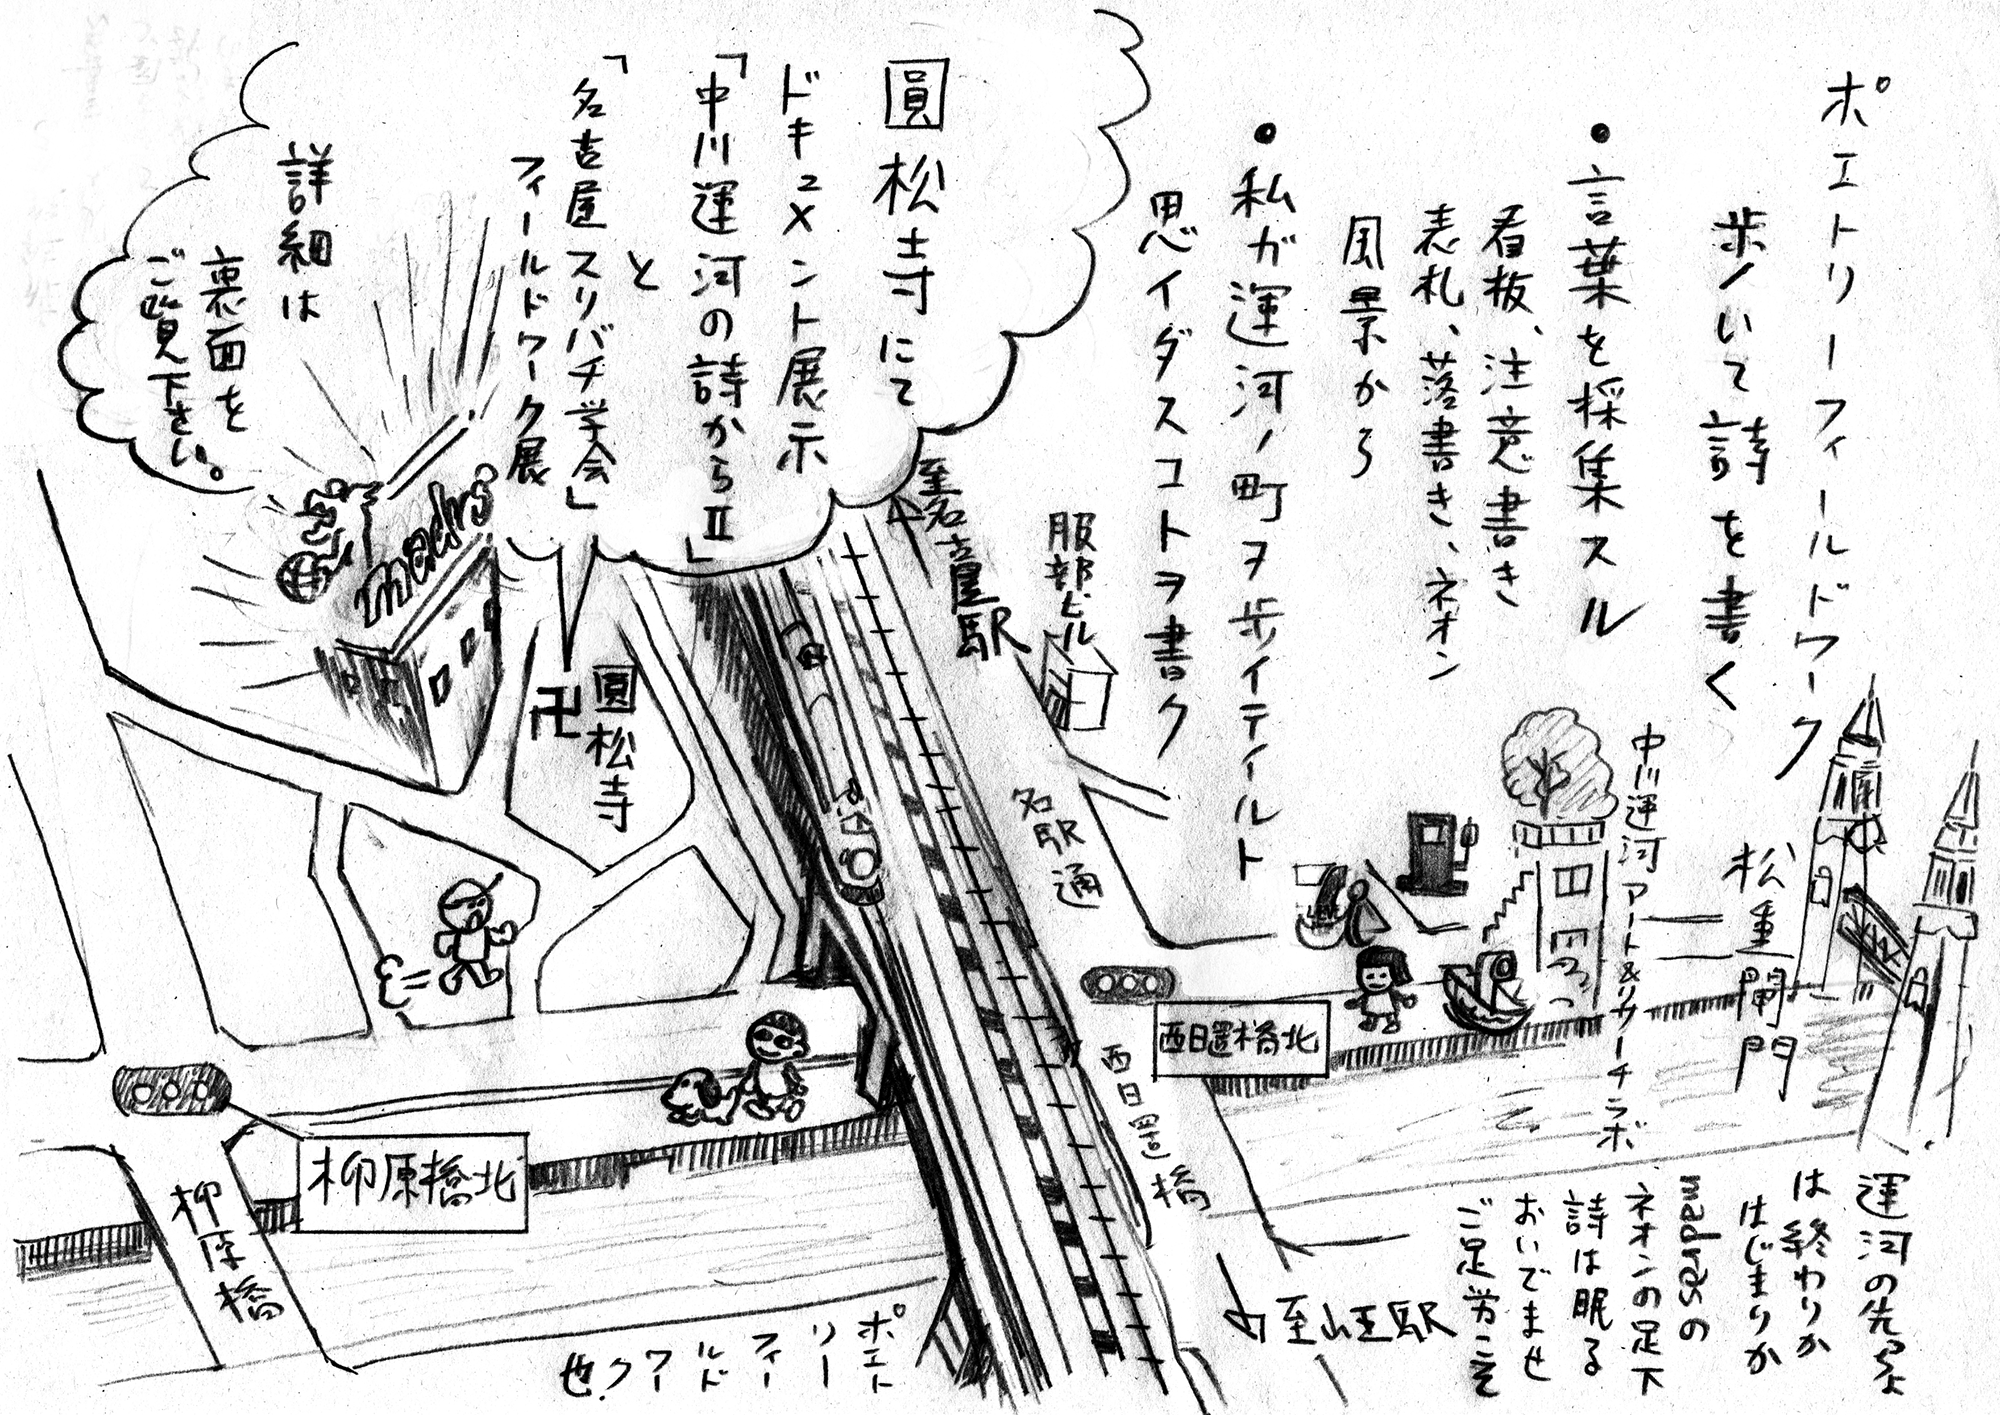 ポエトリーフィールドワーク
歩いて詩を書く
・言葉を採集スル
看板、注意書き
表札、落書き、ネオン
風景から
・私ガ運河ノ町ヲ歩イテイルト
思イダスコトヲ書ク
圓松寺にて
ドキュメント展示
「中川運河の詩からⅡ」
と
「名古屋スリバチ学会」
フィールドワーク展
詳細は
裏面を
ご覧下さい。
madras
卍圓松寺
至名古屋駅
服部ビル
名駅通
中川運河アート&リサーチラボ
松重閘門
西日置橋北
西日置橋
柳原橋北
柳原橋
至山王駅
運河の先っちょ
は終わりか
はじまりか
madrasの
ネオンの足下
詩は眠る
おいでませ
ご足労こそ
ポエト
リー
フィー
ルド
ワー
ク.
也